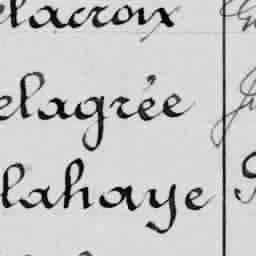 elacroix
elagrée
lahaye